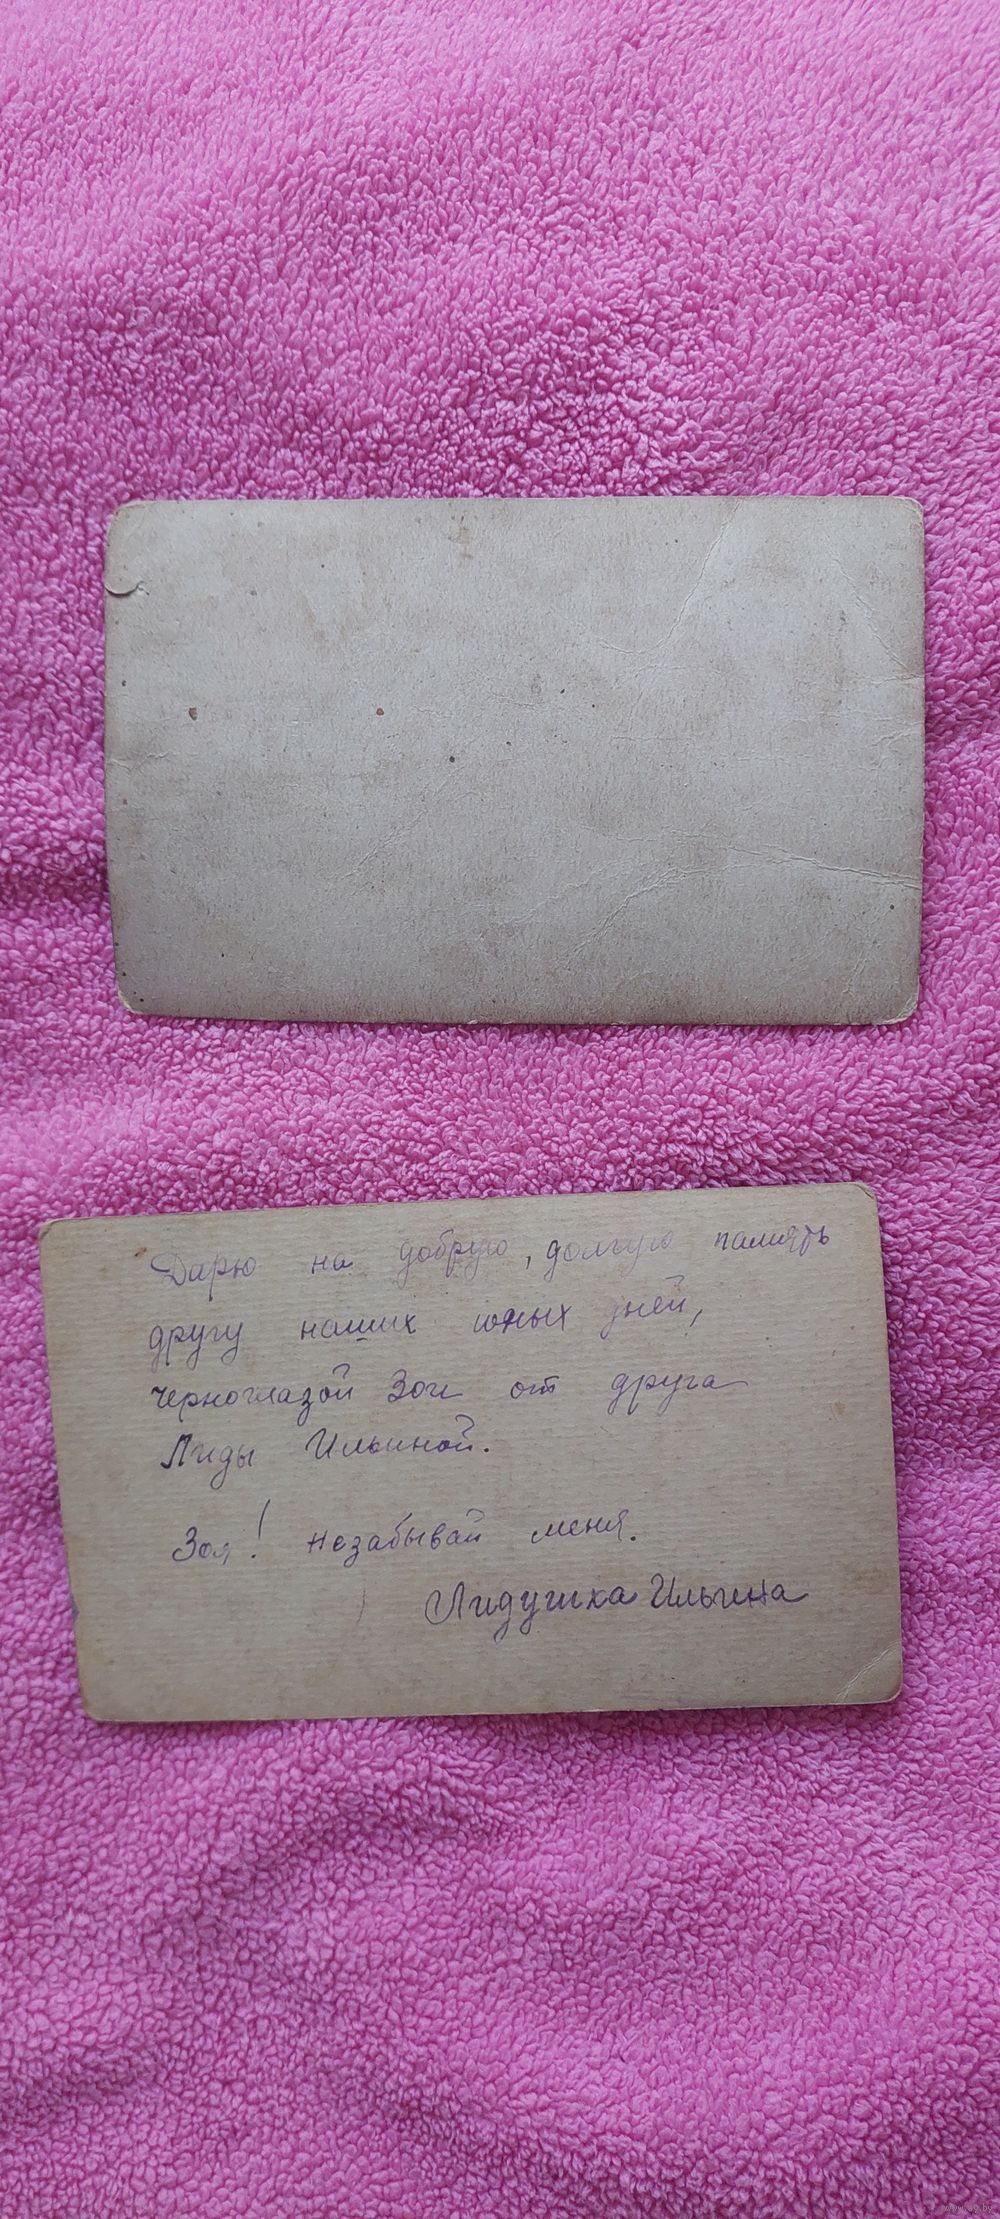 Дарю на добрую, долгую память
другу наших юных дней,
черноглазой Зои от друга
Лиды Ильиной.
Зоя! незабывай меня.
Лидушка Ильина
www.ay.by